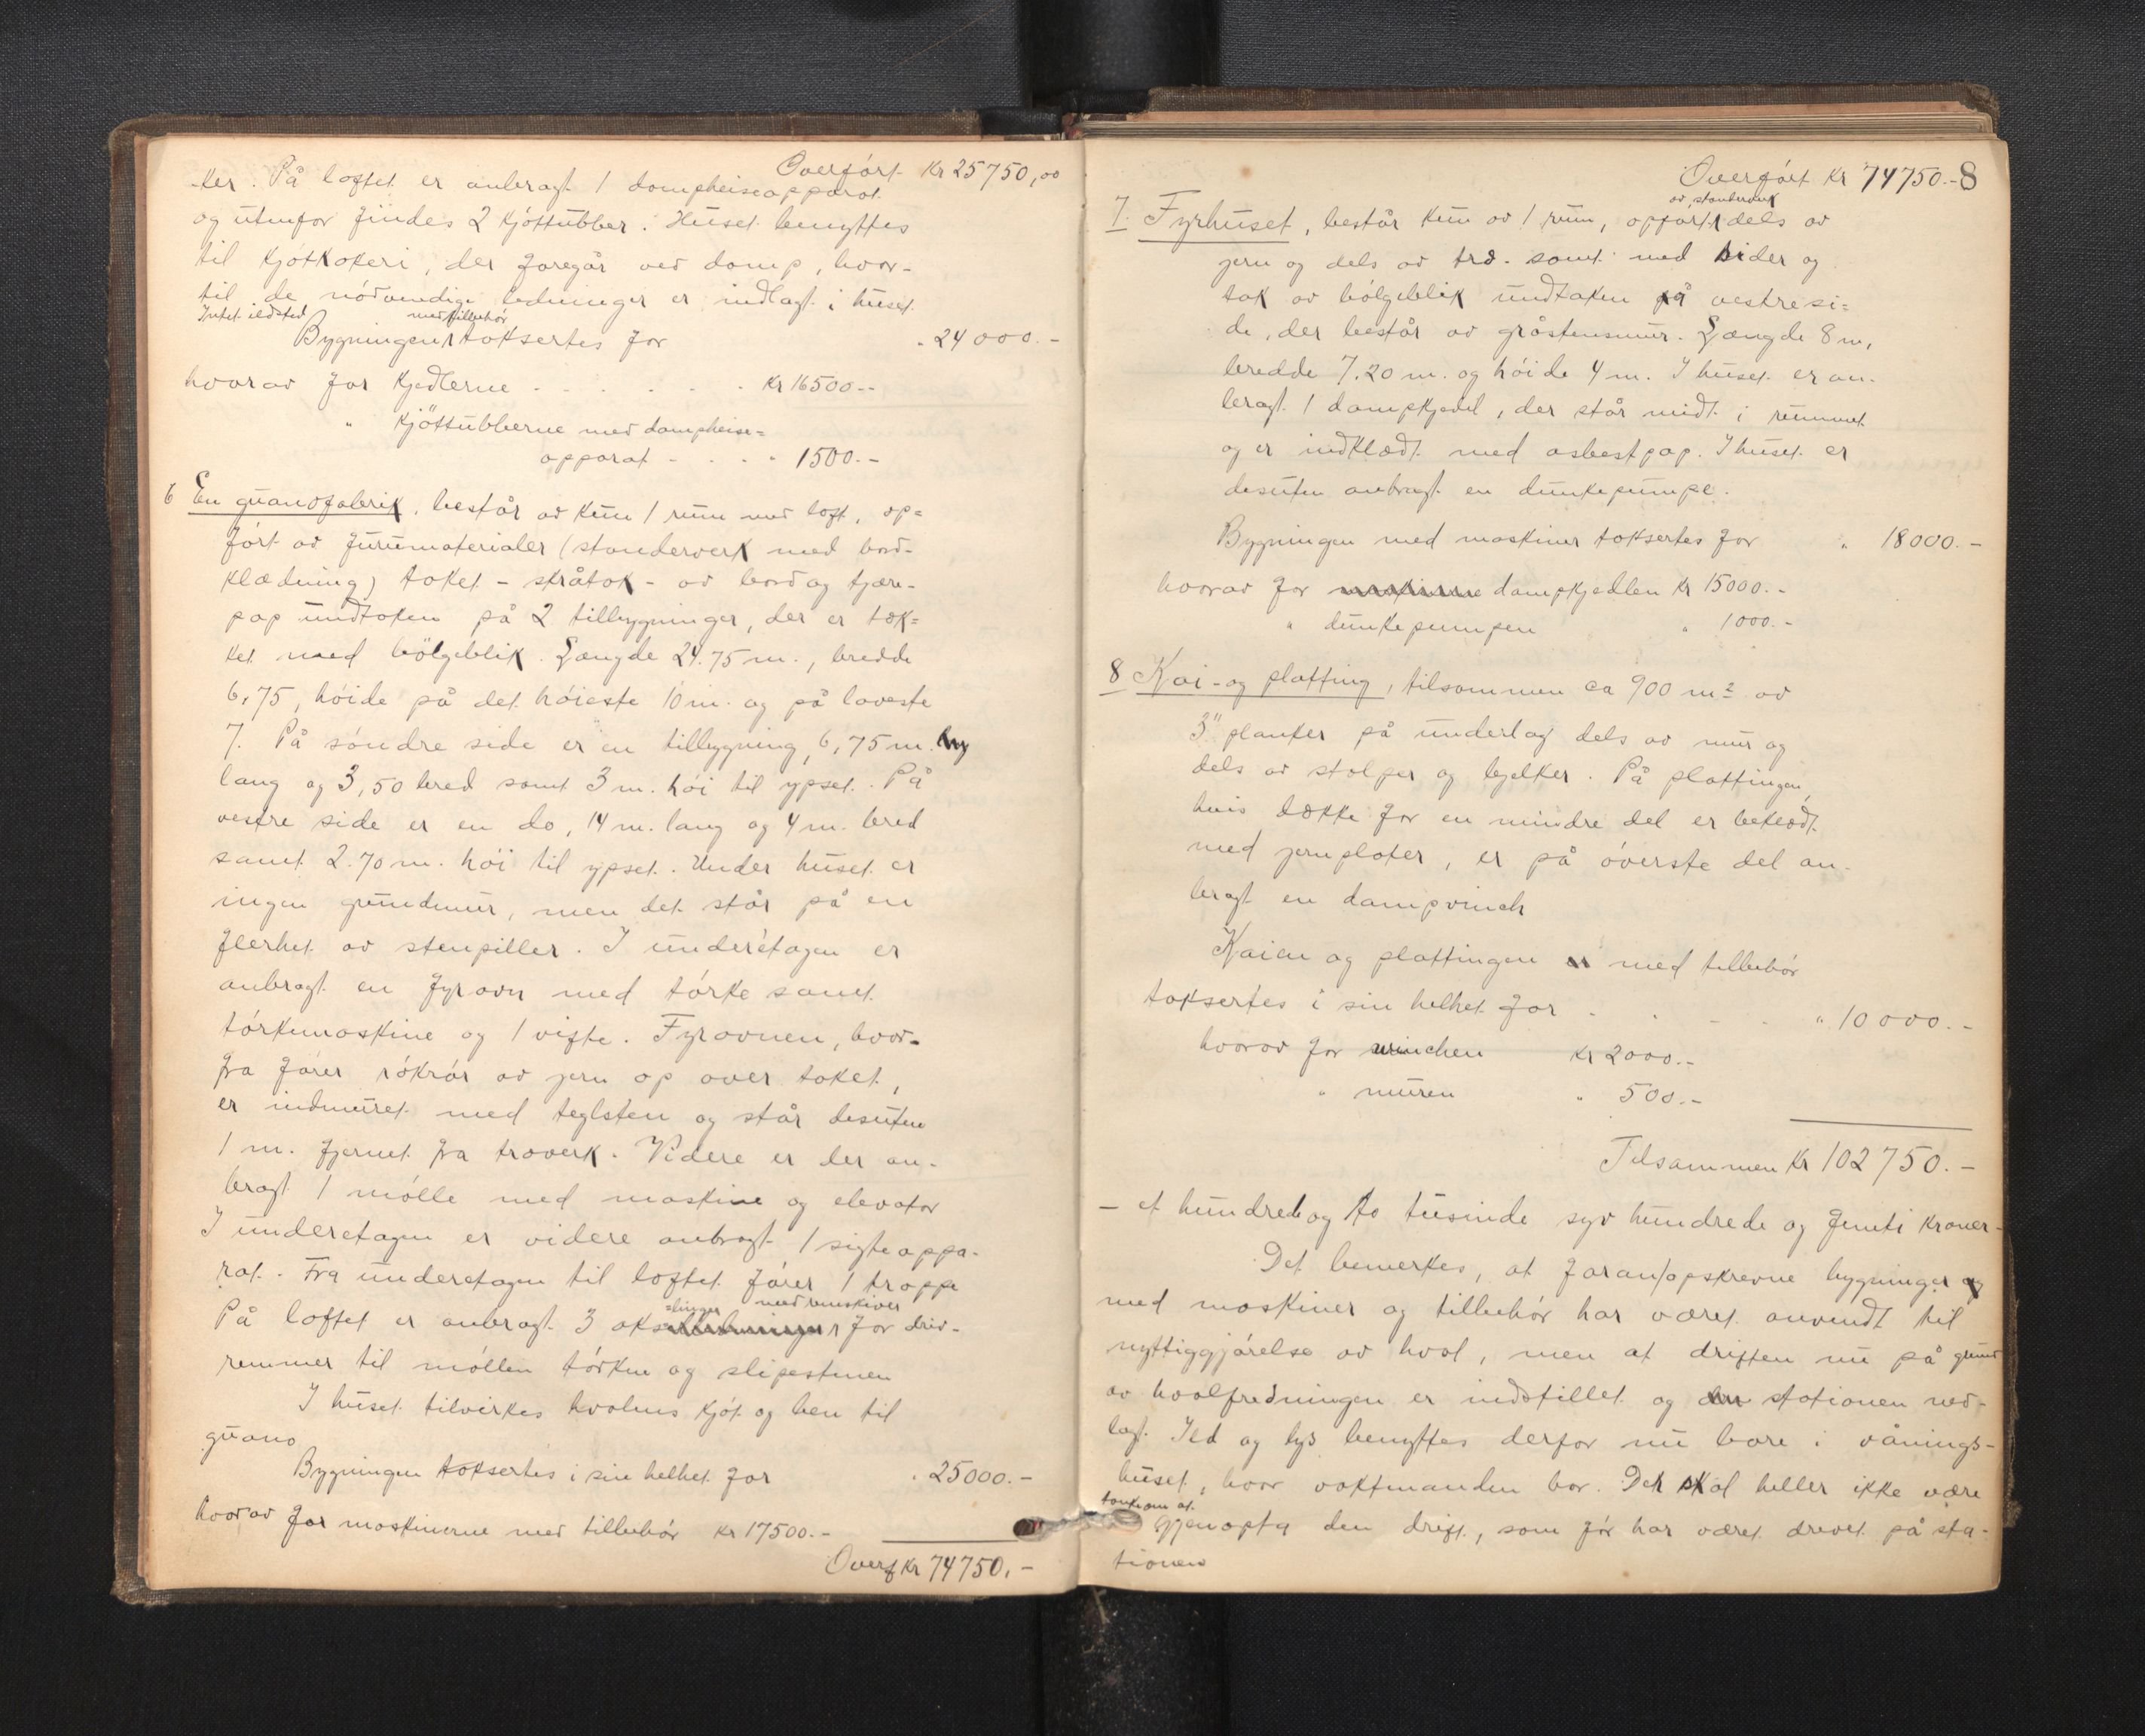 Overført Kr 25750,00
ker. På loftet er anbragt 1 dampheiseapparat
og utenfor findes 2 kjøttubber. Huset benyttes
til kjøtkokeri, der foregår ved damp, hvor-
til de nødvendige ledninger er indlagt i huset.
Intet ildsted
med tilbehör
Bygningen taksertes for " 24000.-
hvorav for kjedlerne - - - - - Kr 16500.-
" kjöttubberne med dampheise=
apparat - - - " 1500.-
6 En guanofabrik, består av kun 1 rum med loft, op=
ført av furumaterialer (standerverk med bord-
klædning) taket - skråtak - av bord og tjære-
pap undtaken på 2 tilbygninger, der er tæk=
ket med bölgeblik. Længde 24.75 m., bredde
6,75, høide på det høieste 10 m. og på laveste
7. På søndre side er en tilbygning, 6,75 m.
lang og 3,50 bred samt 3 m. høi til gpset. På
vestre side er en do, 14 m. lang og 4 m. bred
samt 2.70 m. høi til gpset. Under huset er
ingen grundmur, men det står på en
flerhet av stenpiller. I underetagen er
anbragt en fyrovn med tørke samt
tørkemaskine og 1 vifte. Fyrovnen, hvor-
fra fører røkrør av jern op over taket,
er indmuret med teglsten og står desuten
1 m. fjernet fra træverk. Videre er der an-
bragt 1 mølle med maskine og elevator
I underetagen er videre anbragt 1 sigteappa-
rat. Fra underetagen til loftet fører 1 trappe
slinger med remskiver
På loftet er anbragt 3 aks for driv-
remmer til møllen tørken og slipestenen
I huset tilvirkes hvalens kjøt og ben til
guano
Bygningen taksertes i sin helhet for " 25000.-
hvorav for maskinerne med tilbehör Kr 17500.-
Overf Kr 74750.-
Overført Kr 74750.- 8
av standerverk
7. Fyrhuset, består kun av 1 rum, opført dels av
jern og dels av træ. samt med sider og
tak av bølgeblik undtaken på vestresi=
de, der består av gråstensmur. Længde 8 m,
bredde 7.20 m. og høide 4 m. I huset er an-
bragt 1 dampkjedel, der står midt i rummet
og er indklædt med asbestpap. I huset er
desuten anbragt en dunkepumpe.
Bygningen med maskiner taksertes for " 18000.-
hvorav for maskinerne dampkjedlen Kr 15000.-
" dunkepumpen " 1000.-
8 Kai- og platting, tilsammen ca 900 m² av
3" planker på underlag dels av mur og
dels av stolper og bjelker. På plattingen,
hvis dække for en mindre del er beklædt
med jernplater, er på øverste del an-
bragt en dampvinch
Kaien og plattingen med tilbehør
taksertes i sin helhet for - - - - " 10000.-
hvorav for winchen Kr 2000.-
" muren " 500.-
Tilsammen Kr 102750.-
- et hundrede og to tusinde syv hundrede og femti kroner-
Det bemerkes, at foran/opskrevne bygninger
med maskiner og tilbehør har været anvendt til
nyttiggjørelse av hval, men at driften nu på grund
av hvalfredningen er indstillet og stationen ned-
lagt. Ild og lys benyttes derfor nu bare i vånings-
huset, hvor vaktmanden bor. Det skal heller ikke være
tanke om at
gjenopta den drift, som før har været drevet på sta-
tionen